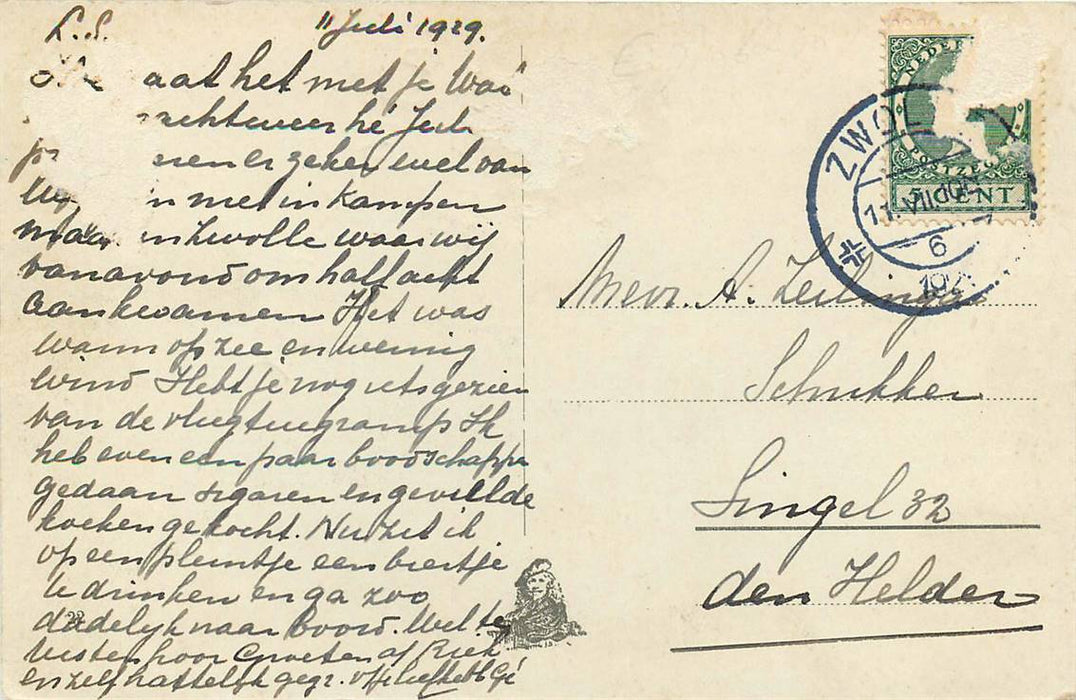 L.S. 11 Juli 1929.
aat het met je
echtweer hè
nen er zeker wel van
n niet in Kampen
maar in Zwolle waar wij
vanavond om half acht
aankwamen Het was
warm op zee en weinig
wind Hebt je nog iets gezien
van de vliegtuigramp Ik
heb even een paar boodschappen
gedaan sigaren en gevulde
koeken gekocht. Nu zit ik
op een pleintje een biertje
te drinken en ga zoo
dadelyk naar boord. Wel te
rusten hoor Groeten af Riek
en zelf hartelyk gegr. v je liefheb Gé
NEDER
POSTZEG
CENT
ZWOL
11 VII
6
192
Mevr. A. Zeilinga
Schukker
Singel 32
den Helder